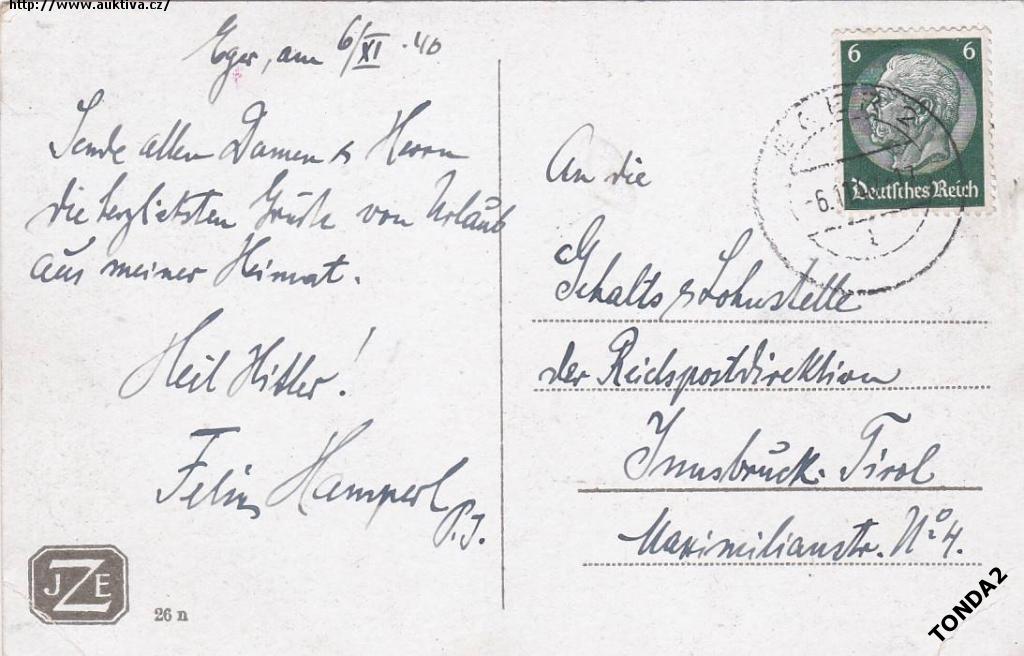 http://www.auktiva.cz/
Eger, am 6/XI. 40
Sende allen Damen & Herrn
die herzlichsten Grüße von Urlaub
aus meiner Heimat.
Heil Hitler!
Hamperl
P.J.
JZE
26 n
6 6
Deutsches Reich
EGER 2
-6.11.
An die
Gehalts & Lohnstelle
der Reichspostdirektion
Innsbruck. Tirol
Maximilianstr. No 4.
TONDA2